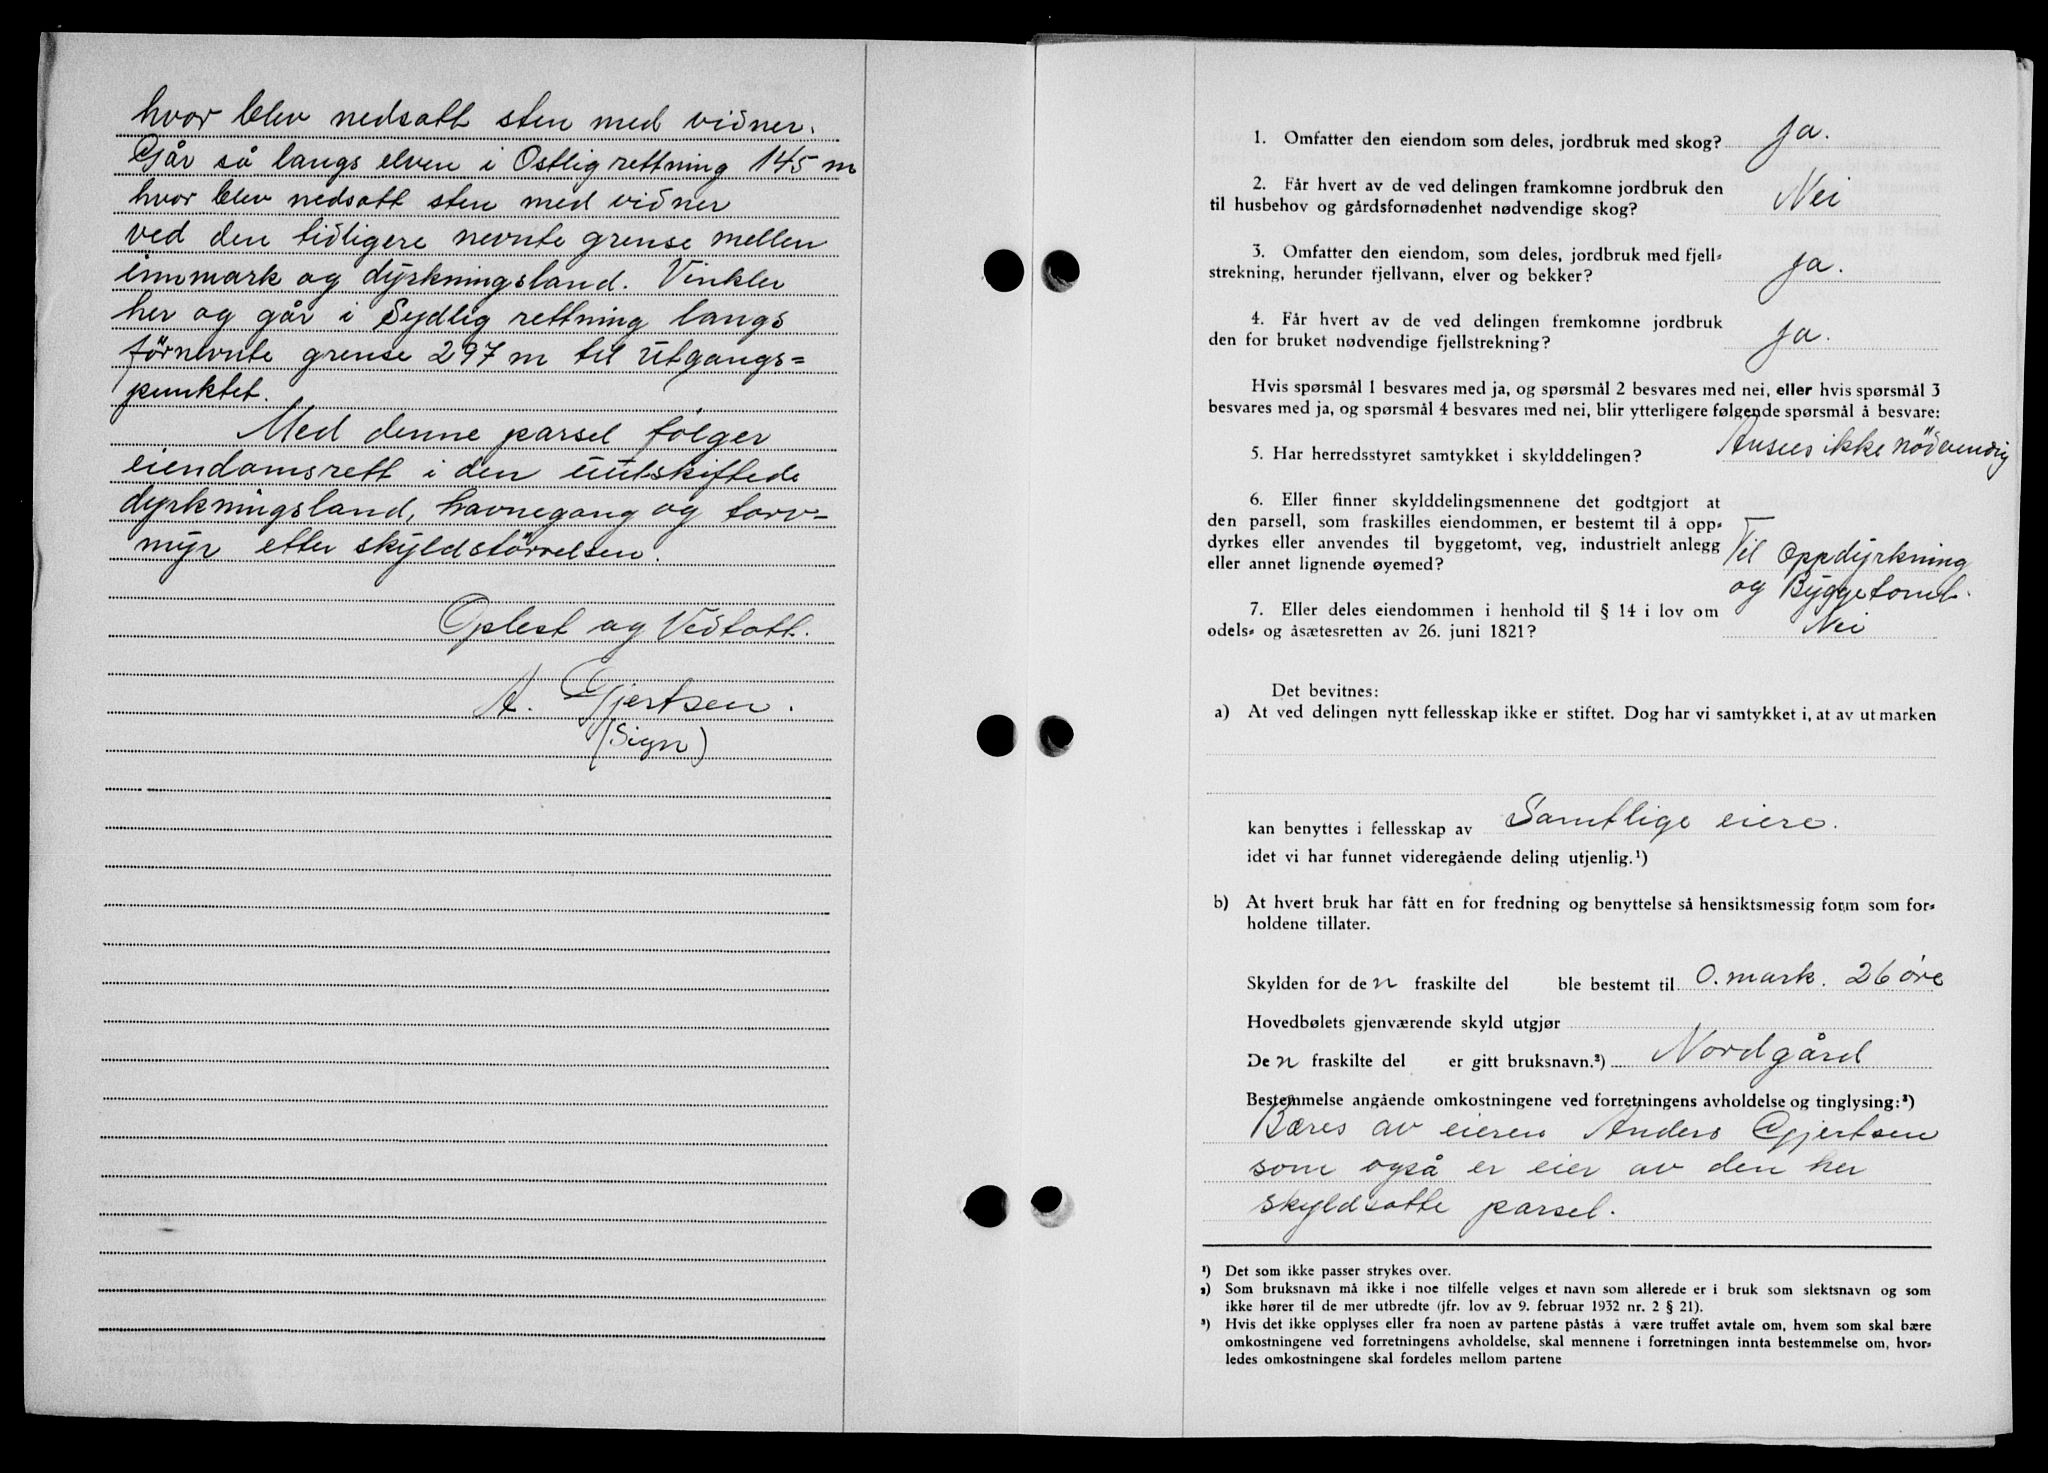 hvor blev nedsatt sten med vidner.
Går så langs elven i Ostlig rettning 145 m
hvor blev nedsatt sten med vidner
ved den tidligere nevnte grense mellen
innmark og dyrkningsland. Vinkler
her og går i Sydlig rettning langs
førnevnte grense 297 m til utgangs=
punktet.
Med denne parsel følger
eiendomsrett i den uutskiftede
dyrkningsland, havnegang og torv-
myr etter skyldstørrelsen.
Oplest og Vedtatt.
A. Gjertsen.
(Sign)
1. Omfatter den eiendom som deles, jordbruk med skog? Ja.
2. Får hvert av de ved delingen framkomne jordbruk den
til husbehov og gårdsfornødenhet nødvendige skog? Nei
3. Omfatter den eiendom, som deles, jordbruk med fjell=
strekning, herunder fjellvann, elver og bekker? Ja.
4. Får hvert av de ved delingen fremkomne jordbruk
den for bruket nødvendige fjellstrekning? Ja.
Hvis spørsmål 1 besvares med ja, og spørsmål 2 besvares med nei, eller hvis spørsmål 3
besvares med ja, og spørsmål 4 besvares med nei, blir ytterligere følgende spørsmål å besvare:
5. Har herredsstyret samtykket i skylddelingen? Ansees ikke nødvendig
6. Eller finner skylddelingsmennene det godtgjort at
den parsell, som fraskilles eiendommen, er bestemt til å opp=
dyrkes eller anvendes til byggetomt, veg, industrielt anlegg
eller annet lignende øyemed? Til Oppdyrkning
og Byggetomt.
7. Eller deles eiendommen i henhold til § 14 i lov om
odels= og åsætesretten av 26. juni 1821? Nei
Det bevitnes:
a) At ved delingen nytt fellesskap ikke er stiftet. Dog har vi samtykket i, at av utmarken
kan benyttes i fellesskap av Samtlige eiere.
idet vi har funnet videregående deling utjenlig.¹)
b) At hvert bruk har fått en for fredning og benyttelse så hensiktsmessig form som for=
holdene tillater.
Skylden for den fraskilte del ble bestemt til 0. mark. 26 øre
Hovedbølets gjenværende skyld utgjør
Den fraskilte del er gitt bruksnavn.²) Nordgård
Bestemmelse angående omkostningene ved forretningens avholdelse og tinglysing:³)
Bæres av eieren Anders Gjertsen
som også er eier av den her
skyldsatte parsel.
¹) Det som ikke passer strykes over.
²) Som bruksnavn må ikke i noe tilfelle velges et navn som allerede er i bruk som slektsnavn og som
ikke hører til de mer utbredte (jfr. lov av 9. februar 1932 nr. 2 § 21).
³) Hvis det ikke opplyses eller fra noen av partene påstås å være truffet avtale om, hvem som skal bære
omkostningene ved forretningens avholdelse, skal mennene i forretningen innta bestemmelse om, hvor=
ledes omkostningene skal fordeles mellom partene